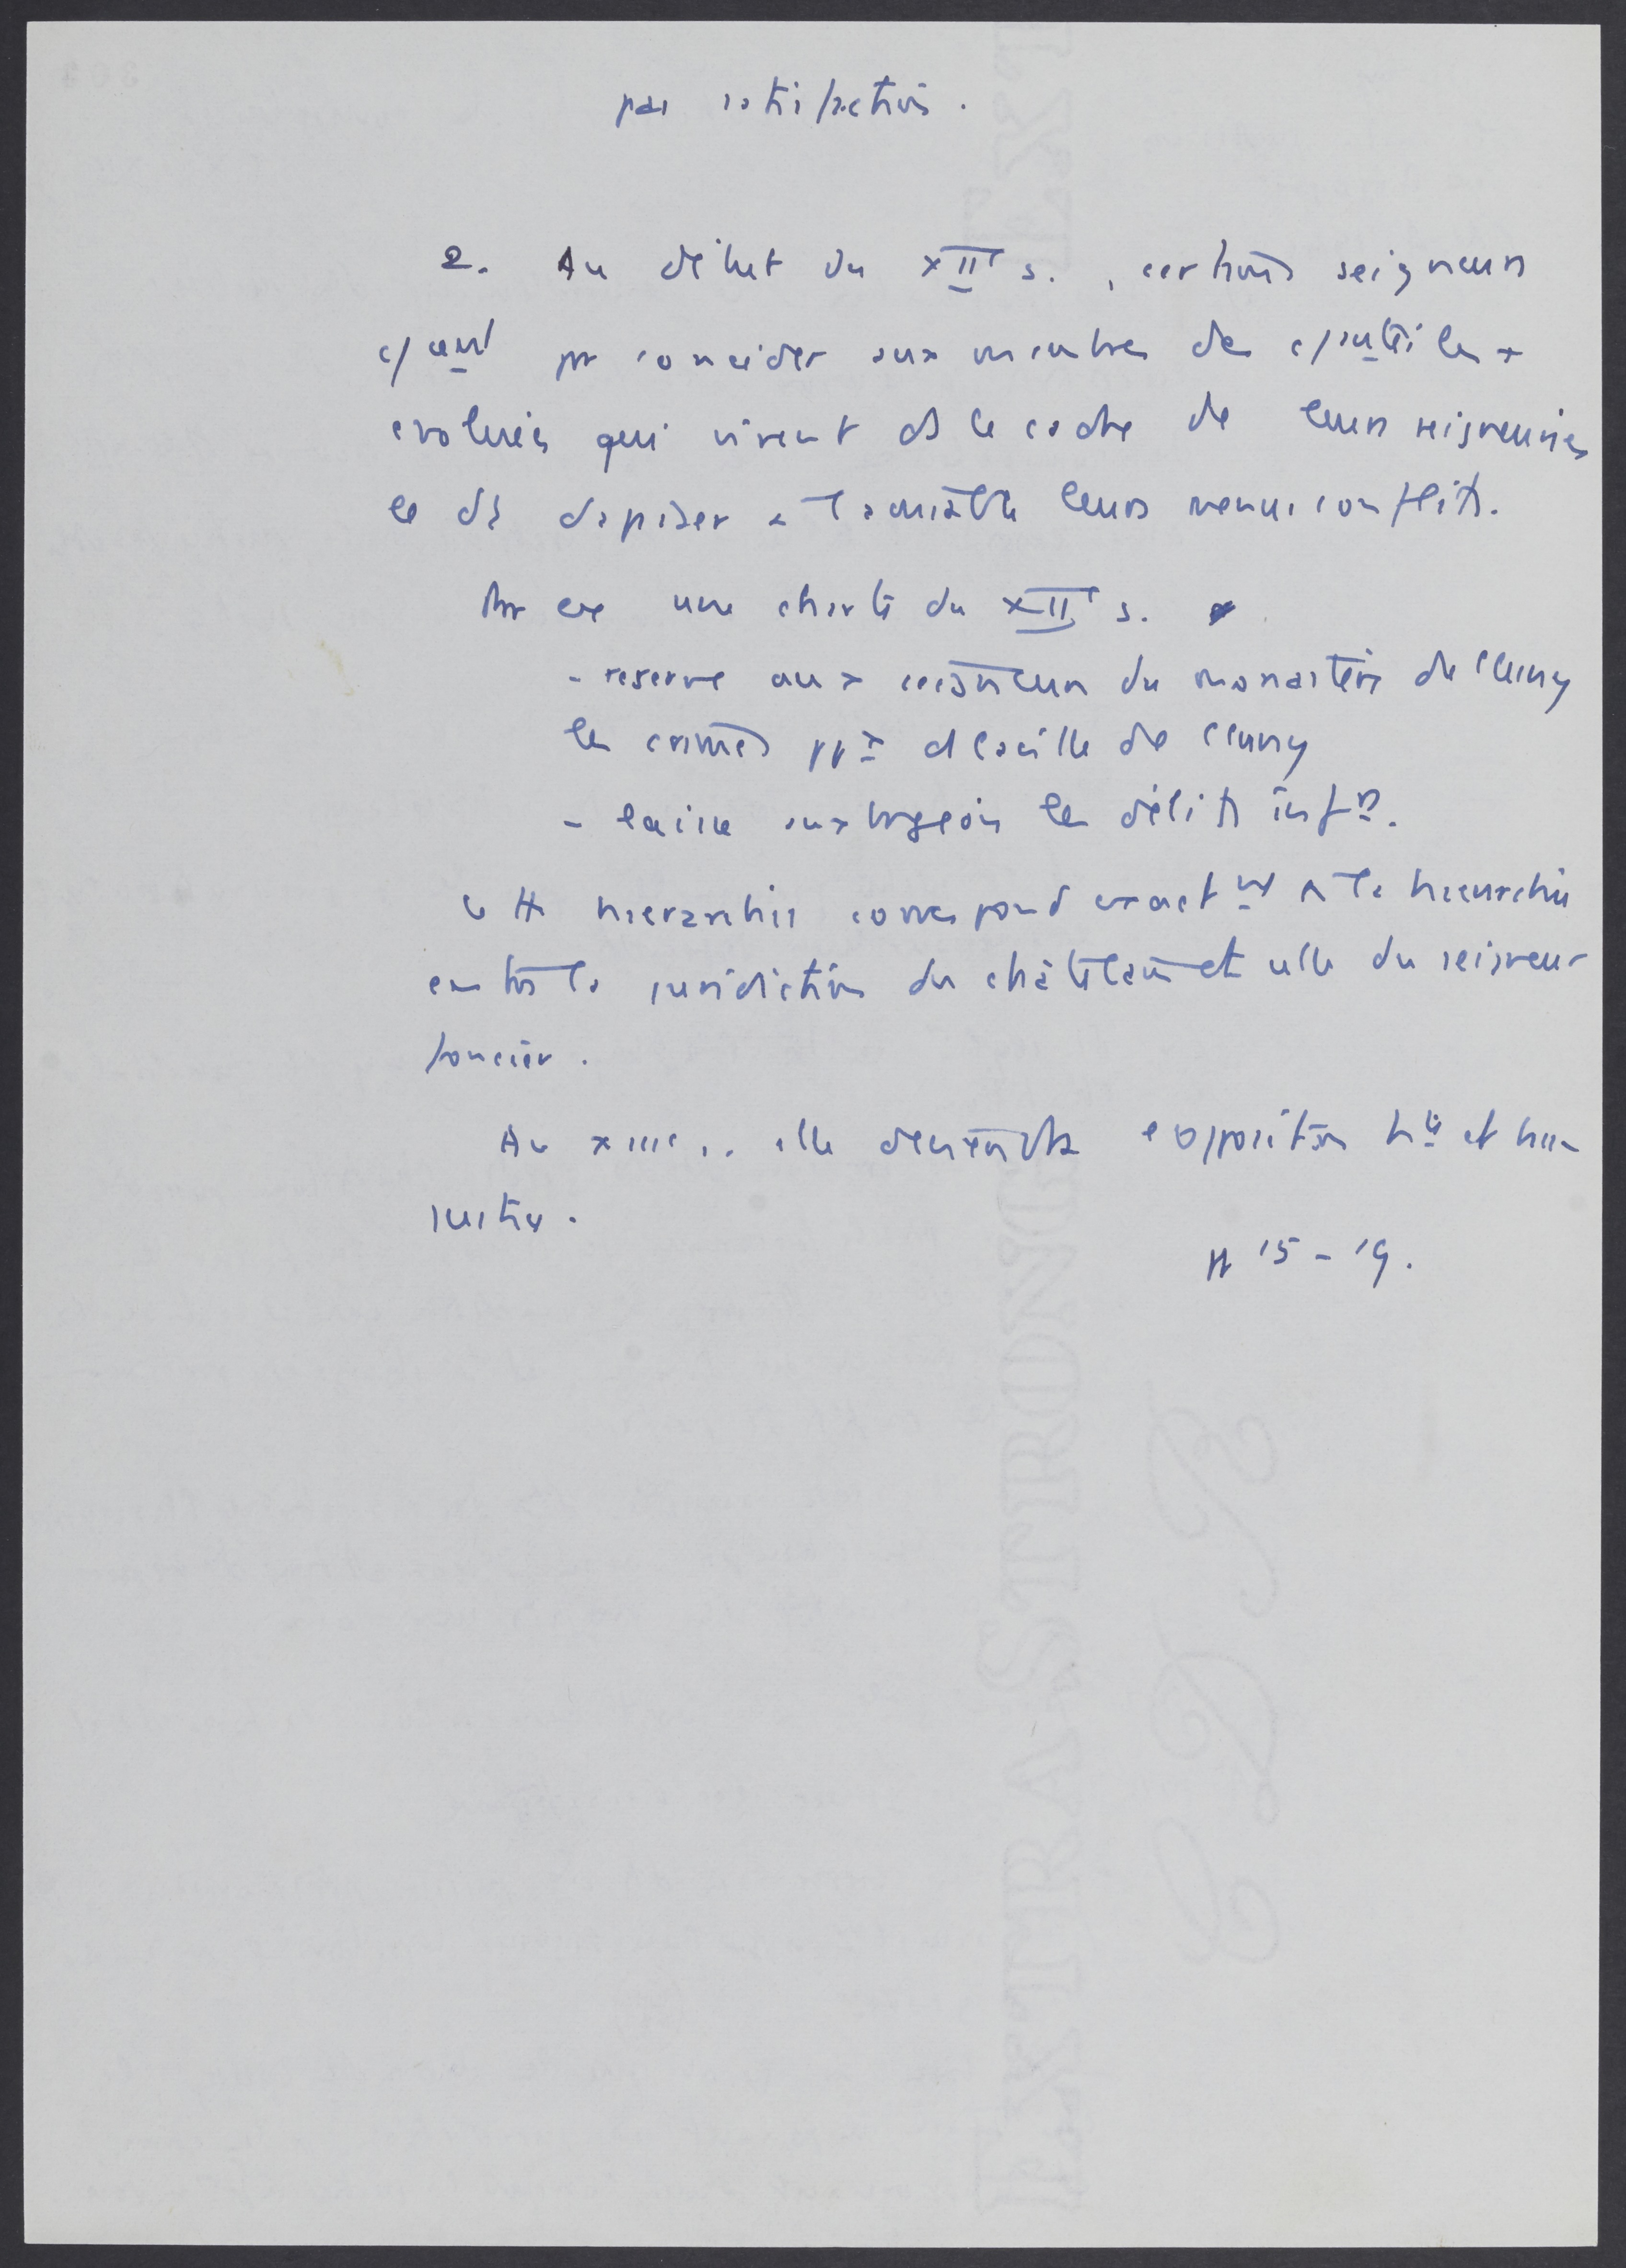 par satisfaction.
2. Au début du XIIe s., certains seigneurs
c/cent pr concéder aux membres des c/autés les +
évoluées qui vivent ds le cadre de leurs seigneuries
le dt d'apaiser à l'amiable leurs menus conflits.
Par ex une charte du XIIe s.
- réserve aux seigneurs du monastère de Cluny
les crimes ppx de la ville de Cluny
- laisse aux bourgeois les délits infrs.
Cette hiérarchie correspond exactmt à la hiérarchie
entre la juridiction du châtelain et celle du seigneur
foncier.
Au XIIIe s. elle deviendra l'opposition hte et basse
justice.
H 15-19.